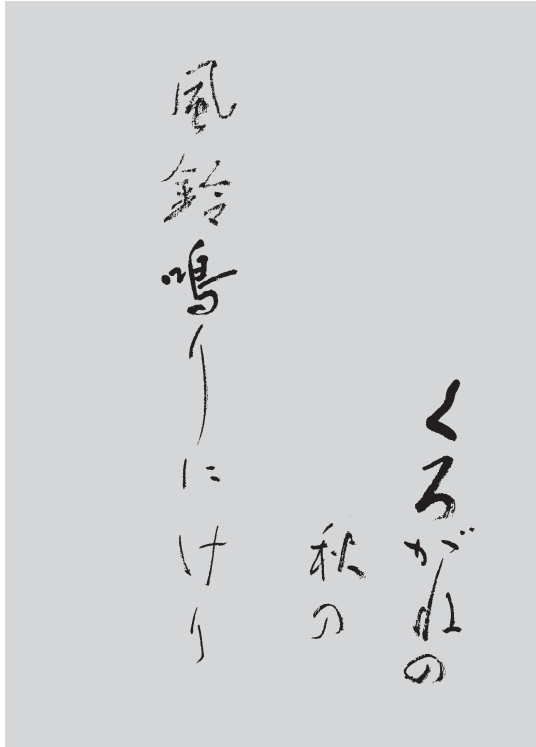 くろがねの
秋の
風鈴鳴りにけり